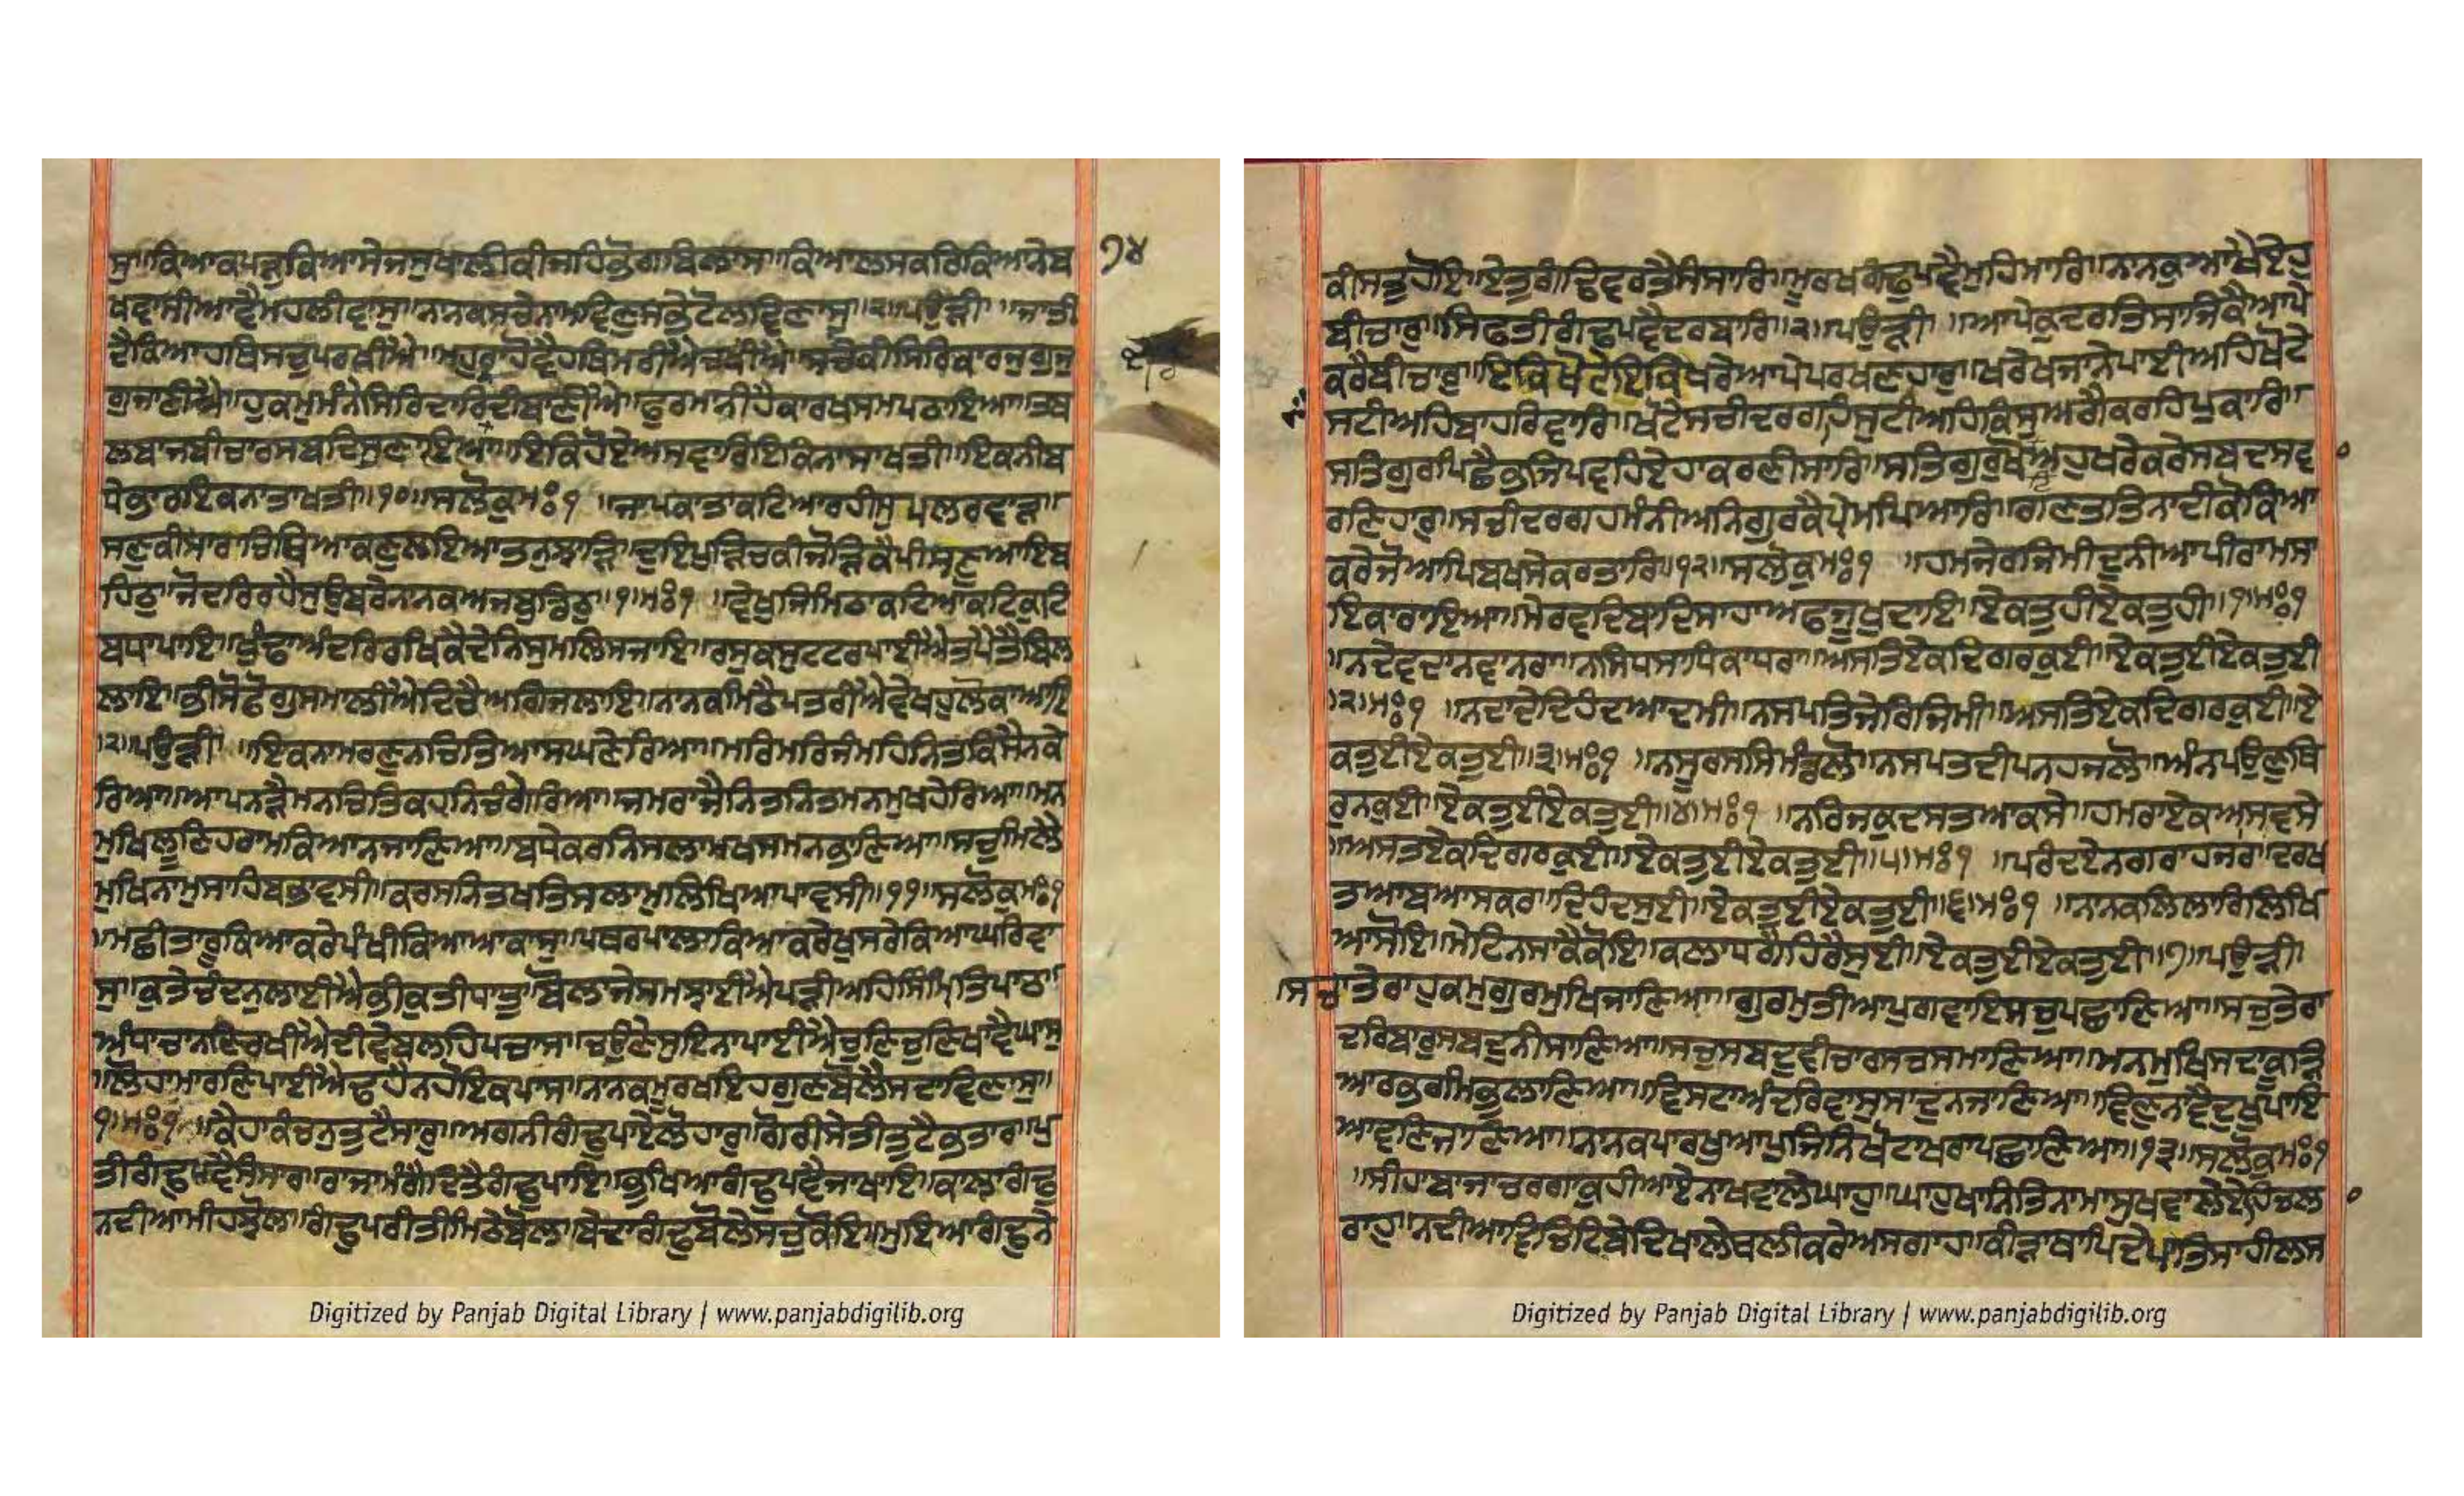 ਸੁ॥ਕਿਆਕਪੜੁਕਿਆਸੇਜਸੁਖਾਲੀਕੀਜਹਿਭੋਗਬਿਲਾਸ॥ਕਿਆਲਸਕਰਕਿਆਨੇਬ ੧੪
ਖਵਾਸੀਆਵੈਮਹਲੀਵਾਸੁ॥ਨਾਨਕਸਚੇਨਾਮਵਿਣੁਸਭੇਟੋਲਵਿਣਾਸੁ॥੨॥ਪਉੜੀ॥ਜਾਤੀ
ਦੈਕਿਆਹਥਿਸਚੁਪਰਖੀਐ॥ਮਹੁਰਾਹੋਵੈਹਥਿਮਰੀਐਚਖੀਐ॥ਸਚੇਕੀਸਿਰਕਾਰਜੁਗੁਜੁ
ਗੁਜਾਣੀਐ॥ਹੁਕਮੁਮੰਨੇਸਿਰਦਾਰਿਦੀਬਾਣੀਐ॥ਫੁਰਮਾਨੀਹੈਕਾਰਖਸਮਪਠਾਇਆ॥ਤਬ
ਲਬਾਜਬੀਚਾਰਸਬਦਿਸੁਣਾਇਆ॥ਇਕਿਹੋਏਅਸਵਾਰਇਕਨਾਸਾਖਤੀ॥ਇਕਨੀਬ
ਧੇਭਾਰਇਕਨਾਤਾਖਤੀ॥੧੦॥ਸਲੋਕੁਮਃ੧॥ਜਾਪਕਾਤਾਕਟਿਆਰਹੀਸੁਪਲਰਵਾੜਿ
ਸਣੁਕੀਸਾਰਚਿਥਿਆਕਣੁਲਇਆਤਨੁਝਾੜਿ॥ਦੁਇਪੁੜਿਚਕੀਜੋੜਿਕੈਪੀਸਣੁਆਇਬ
ਹਿਠੁ॥ਜੋਦਰਿਰਹੈਸੁਉਬਰੇਨਾਨਕਅਜਬੁਡਿਠੁ॥੧॥ਮਃ੧॥ਵੇਖੁਜਿਮਿਠਾਕਟਿਆਕਟਿਕੁਟਿ
ਬਧਾਪਾਇ॥ਖੁੰਢਾਅੰਦਰਿਰਖਿਕੈਦੇਨਿਸੁਮਲਸਜਾਇ॥ਰਸੁਕਸੁਟਟਰਪਾਈਐਤਪੈਤੈਵਿਲ
ਲਾਇ॥ਭੀਸੋਫੋਗੁਸਮਾਲੀਐਦਿਚੈਅਗਿਜਲਾਇ॥ਨਾਨਕਮਿਠੈਪਤਰੀਐਵੇਖਹੁਲੋਕਾਆਇ
॥੨॥ਪਉੜੀ॥ਇਕਨਾਮਰਣੁਨਚਿਤਿਆਸਘਣੇਰਿਆ॥ਮਰਿਮਰਿਜੰਮਹਿਨਿਤਕਿਸੈਨਕੇ
ਰਿਆ॥ਆਪਨੜੈਮਨਚਿਤਿਕਹਨਿਚੰਗੇਰਿਆ॥ਜਮਰਾਜੈਨਿਤਨਿਤਮਨਮੁਖਹੇਰਿਆ॥ਮਨ
ਮੁਖਿਲੂਣਹਰਾਮਕਿਆਨਜਾਣਿਆ॥ਬਧੇਕਰਨਿਸਲਾਮਖਸਮਨਭਾਣਿਆ॥ਸਚੁਮਿਲੈ
ਮੁਖਿਨਾਮੁਸਾਹਿਬਭਾਵਸੀ॥ਕਰਸਨਿਤਖਤਿਸਲਾਮੁਲਿਖਿਆਪਾਵਸੀ॥੧੧॥ਸਲੋਕੁਮਃ੧
॥ਮਛੀਤਾਰੂਕਿਆਕਰੇਪੰਖੀਕਿਆਆਕਾਸੁ॥ਪਥਰਪਾਲਾਕਿਆਕਰੇਖੁਸਰੇਕਿਆਘਰਿਵਾ
ਸੁ॥ਕੁਤੇਚੰਦਨੁਲਾਈਐਭੀਕੁਤੀਧਾਤੁ॥ਬੋਲਾਜੇਸਮਝਾਈਐਪੜੀਅਹਿਸਿੰਮ੍ਰਿਤਿਪਾਠ॥
ਅੰਧਾਚਾਨਣਿਰਖੀਐਦੀਵੇਬਲਹਿਪਚਾਸ॥ਚਉਣੇਸੁਇਨਾਪਾਈਐਚੁਣਿਚੁਣਿਖਾਵੈਘਾਸੁ
॥ਲੋਹਾਮਾਰਣਿਪਾਈਐਢਹੈਨਹੋਇਕਪਾਸ॥ਨਾਨਕਮੂਰਖਇਹਗੁਣਬੋਲੈਸਦਾਵਿਣਾਸੁ॥
੧॥ਮਃ੧॥ਕੈਹਾਕੰਚਨੁਤੁਟੈਸਾਰੁ॥ਅਗਨੀਗੰਢੁਪਾਏਲੋਹਾਰੁ॥ਗੋਰੀਸੇਤੀਤੁਟੈਭਤਾਰੁ॥ਪੁ
ਤੀਗੰਢੁਪਵੈਸੰਸਾਰਿ॥ਰਾਜਾਮੰਗੈਦਿਤੈਗੰਢੁਪਾਇ॥ਭੁਖਿਆਗੰਢੁਪਵੈਜਾਖਾਇ॥ਕਾਲਾਗੰਢੁ
ਨਦੀਆਮੀਹਝੋਲ॥ਗੰਢੁਪਰੀਤੀਮਿਠੇਬੋਲ॥ਬੇਦਾਗੰਢੁਬੋਲੇਸਚੁਕੋਇ॥ਮੁਇਆਗੰਢੁਨੇ
ਕੀਸਤੁਹੋਇ॥ਏਤੁਗੰਢਿਵਰਤੈਸੰਸਾਰਿ॥ਮੂਰਖਗੰਢੁਪਵੈਮੁਹਿਮਾਰਿ॥ਨਾਨਕੁਆਖੈਏਹੁ
ਬੀਚਾਰੁ॥ਸਿਫਤੀਗੰਢੁਪਵੈਦਰਬਾਰਿ॥੨॥ਪਉੜੀ॥ਆਪੇਕੁਦਰਤਿਸਾਜਿਕੈਆਪੇ
ਕਰੈਬੀਚਾਰੁ॥ਇਕਿਖੋਟੇਇਕਿਖਰੇਆਪੇਪਰਖਣਹਾਰੁ॥ਖਰੇਖਜਾਨੇਪਾਈਅਹਿਖੋਟੇ
ਸਟੀਅਹਿਬਾਹਰਿਵਾਰਿ॥ਖੋਟੇਸਚੀਦਰਗਹਸੁਟੀਅਹਿਕਿਸੁਅਗੈਕਰਹਿਪੁਕਾਰਿ॥
ਸਤਿਗੁਰਪਿਛੈਭਜਿਪਵਹਿਏਹਾਕਰਣੀਸਾਰਿ॥ਸਤਿਗੁਰੁਖੋਟਿਅਹੁਖਰੇਕਰੇਸਬਦਿਸਵਾ
ਰਣਿਹਾਰੁ॥ਸਚੀਦਰਗਹਮੰਨੀਅਨਿਗੁਰਕੈਪ੍ਰੇਮਪਿਆਰਿ॥ਗਣਤਤਿਨਾਦੀਕੋਕਿਆ
ਕਰੇਜੋਆਪਿਬਖਸੇਕਰਤਾਰਿ॥੧੨॥ਸਲੋਕੁਮਃ੧॥ਹਮਜੇਰਜਿਮੀਦੁਨੀਆਪੀਰਾਮਸਾ
ਇਕਾਰਾਇਆ॥ਮੇਰਵਦਿਬਾਦਿਸਾਹਾਅਫਜੂਖੁਦਾਇ॥ਏਕਤੂਹੀਏਕਤੂਹੀ॥੧॥ਮਃ੧
॥ਨਦੇਵਦਾਨਵਾਨਰਾ॥ਨਸਿਧਸਾਧਿਕਾਧਰਾ॥ਅਸਤਿਏਕਦਿਗਰਕੁਈ॥ਏਕਤੁਈਏਕਤੁਈ
॥੨॥ਮਃ੧॥ਨਦਾਦੇਦਿਹੰਦਆਦਮੀ॥ਨਸਪਤਜੇਰਜਿਮੀ॥ਅਸਤਿਏਕਦਿਗਰਕੁਈ॥ਏ
ਕਤੁਈਏਕਤੁਈ॥੩॥ਮਃ੧॥ਨਸੂਰਸਸਿਮੰਡਲੋ॥ਨਸਪਤਦੀਪਨਹਜਲੋ॥ਅੰਨਪਉਣੁਥਿ
ਰੁਨਕੁਈ॥ਏਕਤੁਈਏਕਤੁਈ॥੪॥ਮਃ੧॥ਨਰਿਜਕੁਦਸਤਆਕਸੇ॥ਹਮਰਾਏਕਅਸਵਸੇ
॥ਅਸਤਏਕਦਿਗਰਕੁਈ॥ਏਕਤੁਈਏਕਤੁਈ॥੫॥ਮਃ੧॥ਪਰਿੰਦਏਨਗਰਾਹਜਰ॥ਦਰਖ
ਤਆਬਆਸਕਰ॥ਦਿਹੰਦਸੁਈ॥ਏਕਤੁਈਏਕਤੁਈ॥੬॥ਮਃ੧॥ਨਾਨਕਲਿਲਾਰਿਲਿਖਿ
ਆਸੋਇ॥ਮੇਟਿਨਸਾਕੈਕੋਇ॥ਕਲਾਧਰੈਹਿਰੈਸੁਈ॥ਏਕਤੁਈਏਕਤੁਈ॥੭॥ਪਉੜੀ
॥ਸਚਾਤੇਰਾਹੁਕਮੁਗੁਰਮੁਖਿਜਾਣਿਆ॥ਗੁਰਮਤੀਆਪੁਗਵਾਇਸਚੁਪਛਾਣਿਆ॥ਸਚੁਤੇਰਾ
ਦਰਬਾਰੁਸਬਦੁਨੀਸਾਣਿਆ॥ਸਚੁਸਬਦੁਵੀਚਾਰਸਚਸਮਾਣਿਆ॥ਮਨਮੁਖਿਸਦਾਕੂੜਿ
ਆਰਭਰਮਿਭੁਲਾਣਿਆ॥ਵਿਸਟਾਅੰਦਰਿਵਾਸੁਸਾਦੁਨਜਾਣਿਆ॥ਵਿਣੁਨਾਵੈਦੁਖੁਪਾਇ
ਆਵਣਜਾਣਿਆ॥ਨਾਨਕਪਾਰਖੁਆਪੁਜਿਨਿਖੋਟਾਖਰਾਪਛਾਣਿਆ॥੧੩॥ਸਲੋਕੁਮਃ੧
॥ਸੀਹਾਬਾਜਾਚਰਗਾਕੁਹੀਆਏਨਾਖਵਾਲੇਘਾਹ॥ਘਾਹੁਖਾਨਿਤਿਨਾਮਾਸੁਖਵਾਲੇਏਹਿਚਲਾ
ਰਾਹ॥ਨਦੀਆਵਿਚਿਟਿਬੇਦਿਖਾਲੇਥਲੀਕਰੇਅਸਗਾਹ॥ਕੀੜਾਥਾਪਿਦੇਪਾਤਿਸਾਹੀਲਸ
Digitized by Panjab Digital Library | www.panjabdigilib.org
Digitized by Panjab Digital Library | www.panjabdigilib.org